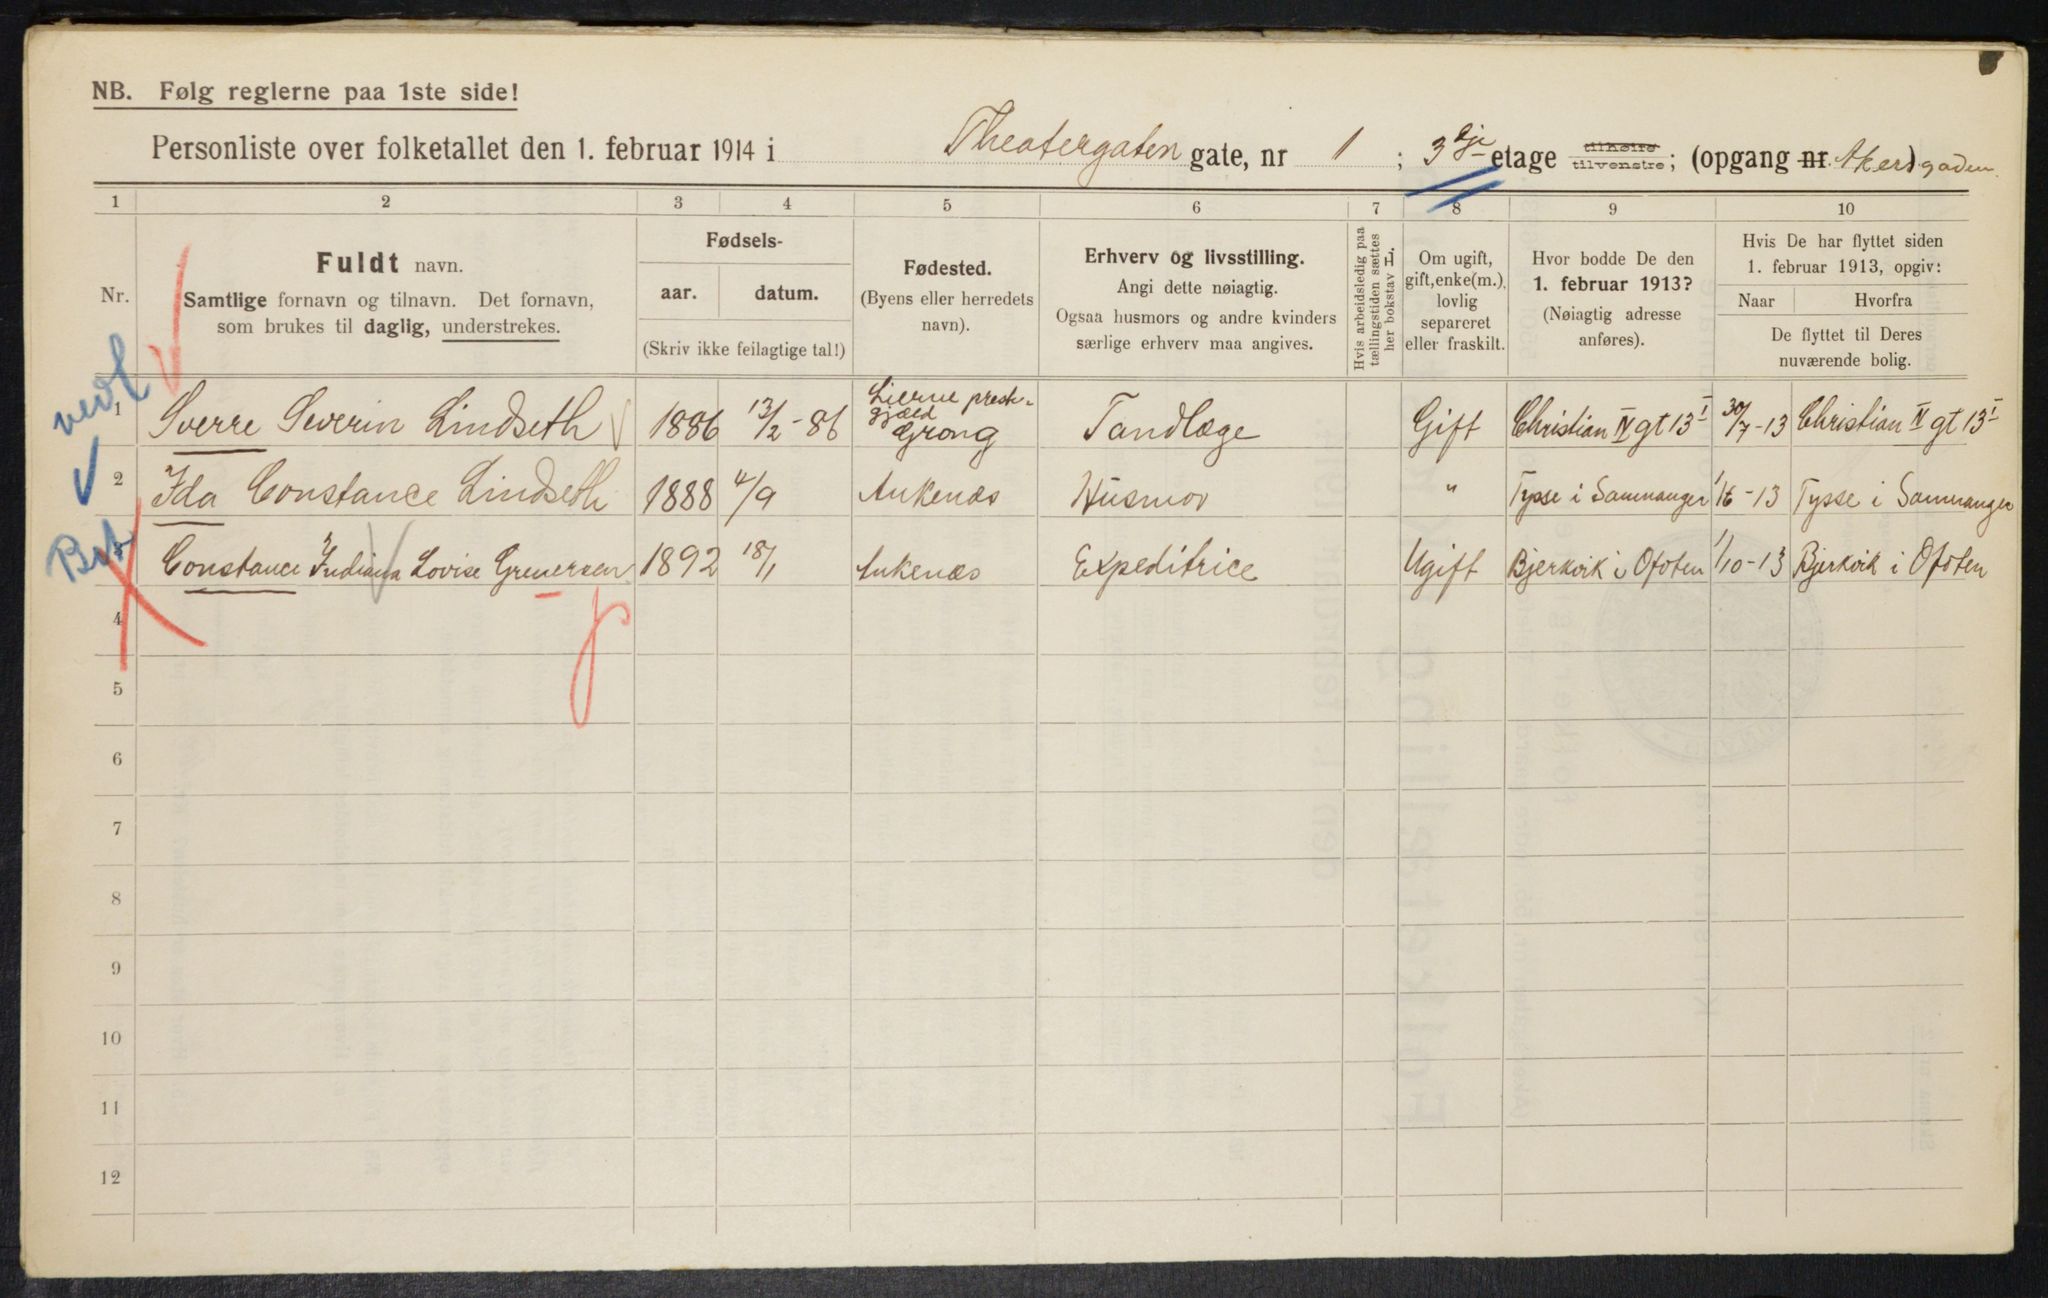 NB. Følg reglerne paa 1ste side!
Personliste over folketallet den 1. februar 1914 i Theatergaten gate, nr 1; 3dje etage tilhøire tilvenstre; (opgang nr. Akersgaden)
1 2 3 4 5 6 7 8 9 10
Nr.
Fuldt navn.
Samtlige fornavn og tilnavn. Det fornavn,
som brukes til daglig, understrekes.
Fødsels-
aar. datum.
(Skriv ikke feilagtige tal!)
Fødested.
(Byens eller herredets
navn).
Erhverv og livsstilling.
Angi dette nøiagtig.
Ogsaa husmors og andre kvinders
særlige erhverv maa angives.
Hvis arbeidsledig paa
tællingstiden sættes
her bokstav L.
Om ugift,
gift, enke(m.),
lovlig
separeret
eller fraskilt.
Hvor bodde De den
1. februar 1913?
(Nøiagtig adresse
anføres).
Hvis De har flyttet siden
1. februar 1913, opgiv:
Naar Hvorfra
De flyttet til Deres
nuværende bolig.
1 Sverre Severin Lindseth 1886 13/2-86 Lierne prest-gjæld Grong Tandlæge Gift Christian IV gt 13 I 30/7-13 Christian IV gt 13 I
2 Ida Constance Lindseth 1888 4/9 Ankenæs Husmor " Tysse i Samnanger 1/6-13 Tysse i Samnanger
3 Constance Indiana Lovise Grenersen 1892 18/1 Ankenæs Expeditrice Ugift Bjerkvik i Ofoten 1/10-13 Bjerkvik i Ofoten
4
5
6
7
8
9
10
11
12